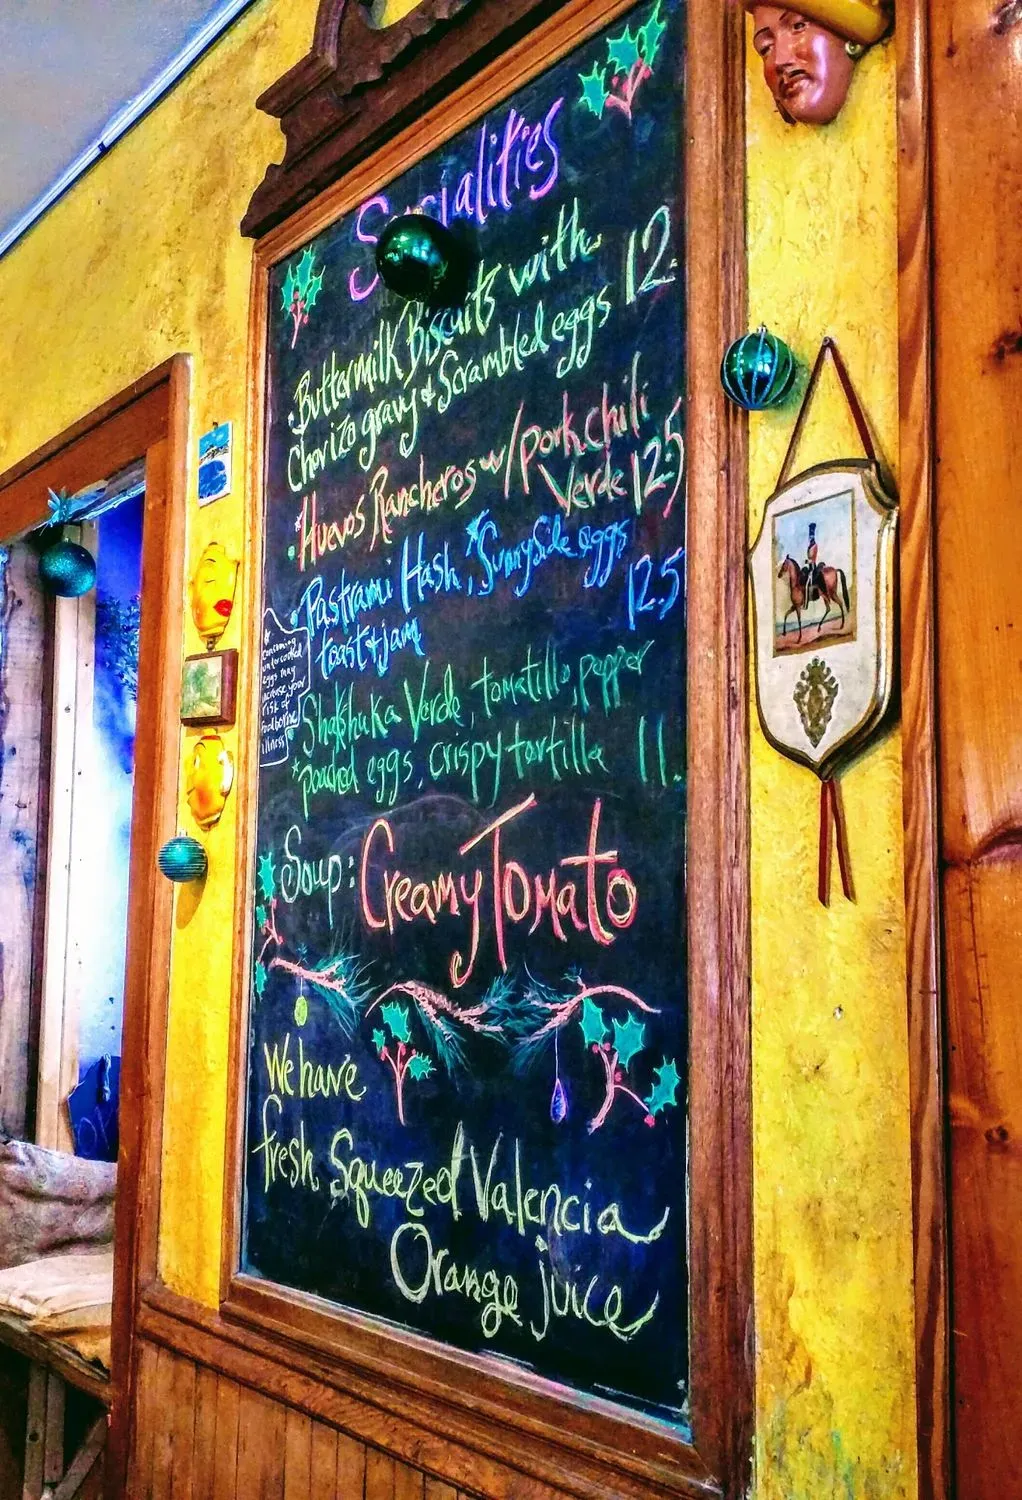 Specialities
• Buttermilk Biscuits with
Chorizo gravy & Scrambled eggs 12.
* Huevos Rancheros w/pork chili
Verde 12.5
• Pastrami Hash, *Sunnyside eggs
toast & jam 12.5
Shakshuka Verde, tomatillo, pepper
*poached eggs, crispy tortilla 11.
* Consuming
undercooked
eggs may
increase your
risk of
foodborne
illness
Soup: Creamy Tomato
We have
fresh Squeezed Valencia
Orange juice